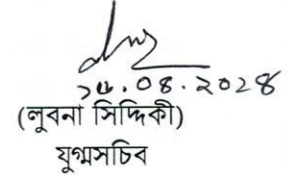 ০৪.২০২৪
(লুবনা সিদ্দিকী)
যুগ্মসচিব